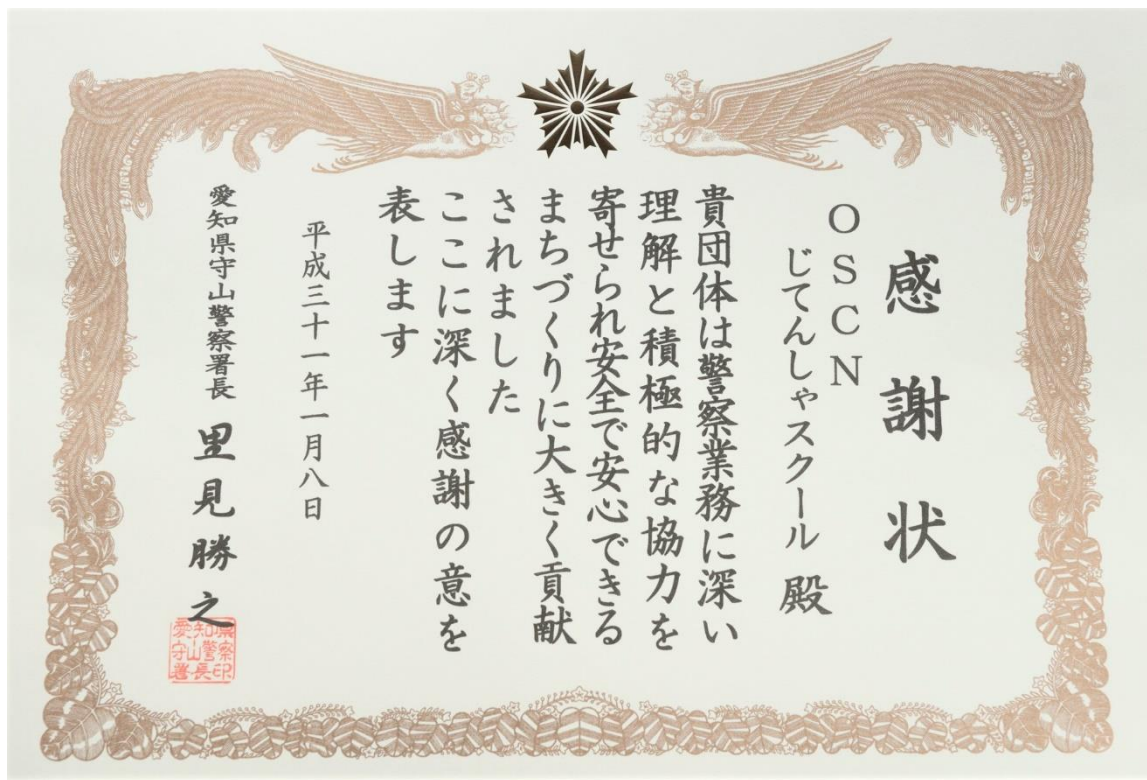 感謝状
OSCN
じてんしゃスクール 殿
貴団体は警察業務に深い
理解と積極的な協力を
寄せられ安全で安心できる
まちづくりに大きく貢献
されました
ここに深く感謝の意を
表します
平成三十一年一月八日
愛知県守山警察署長 里見勝之
愛知県守山警察署長印